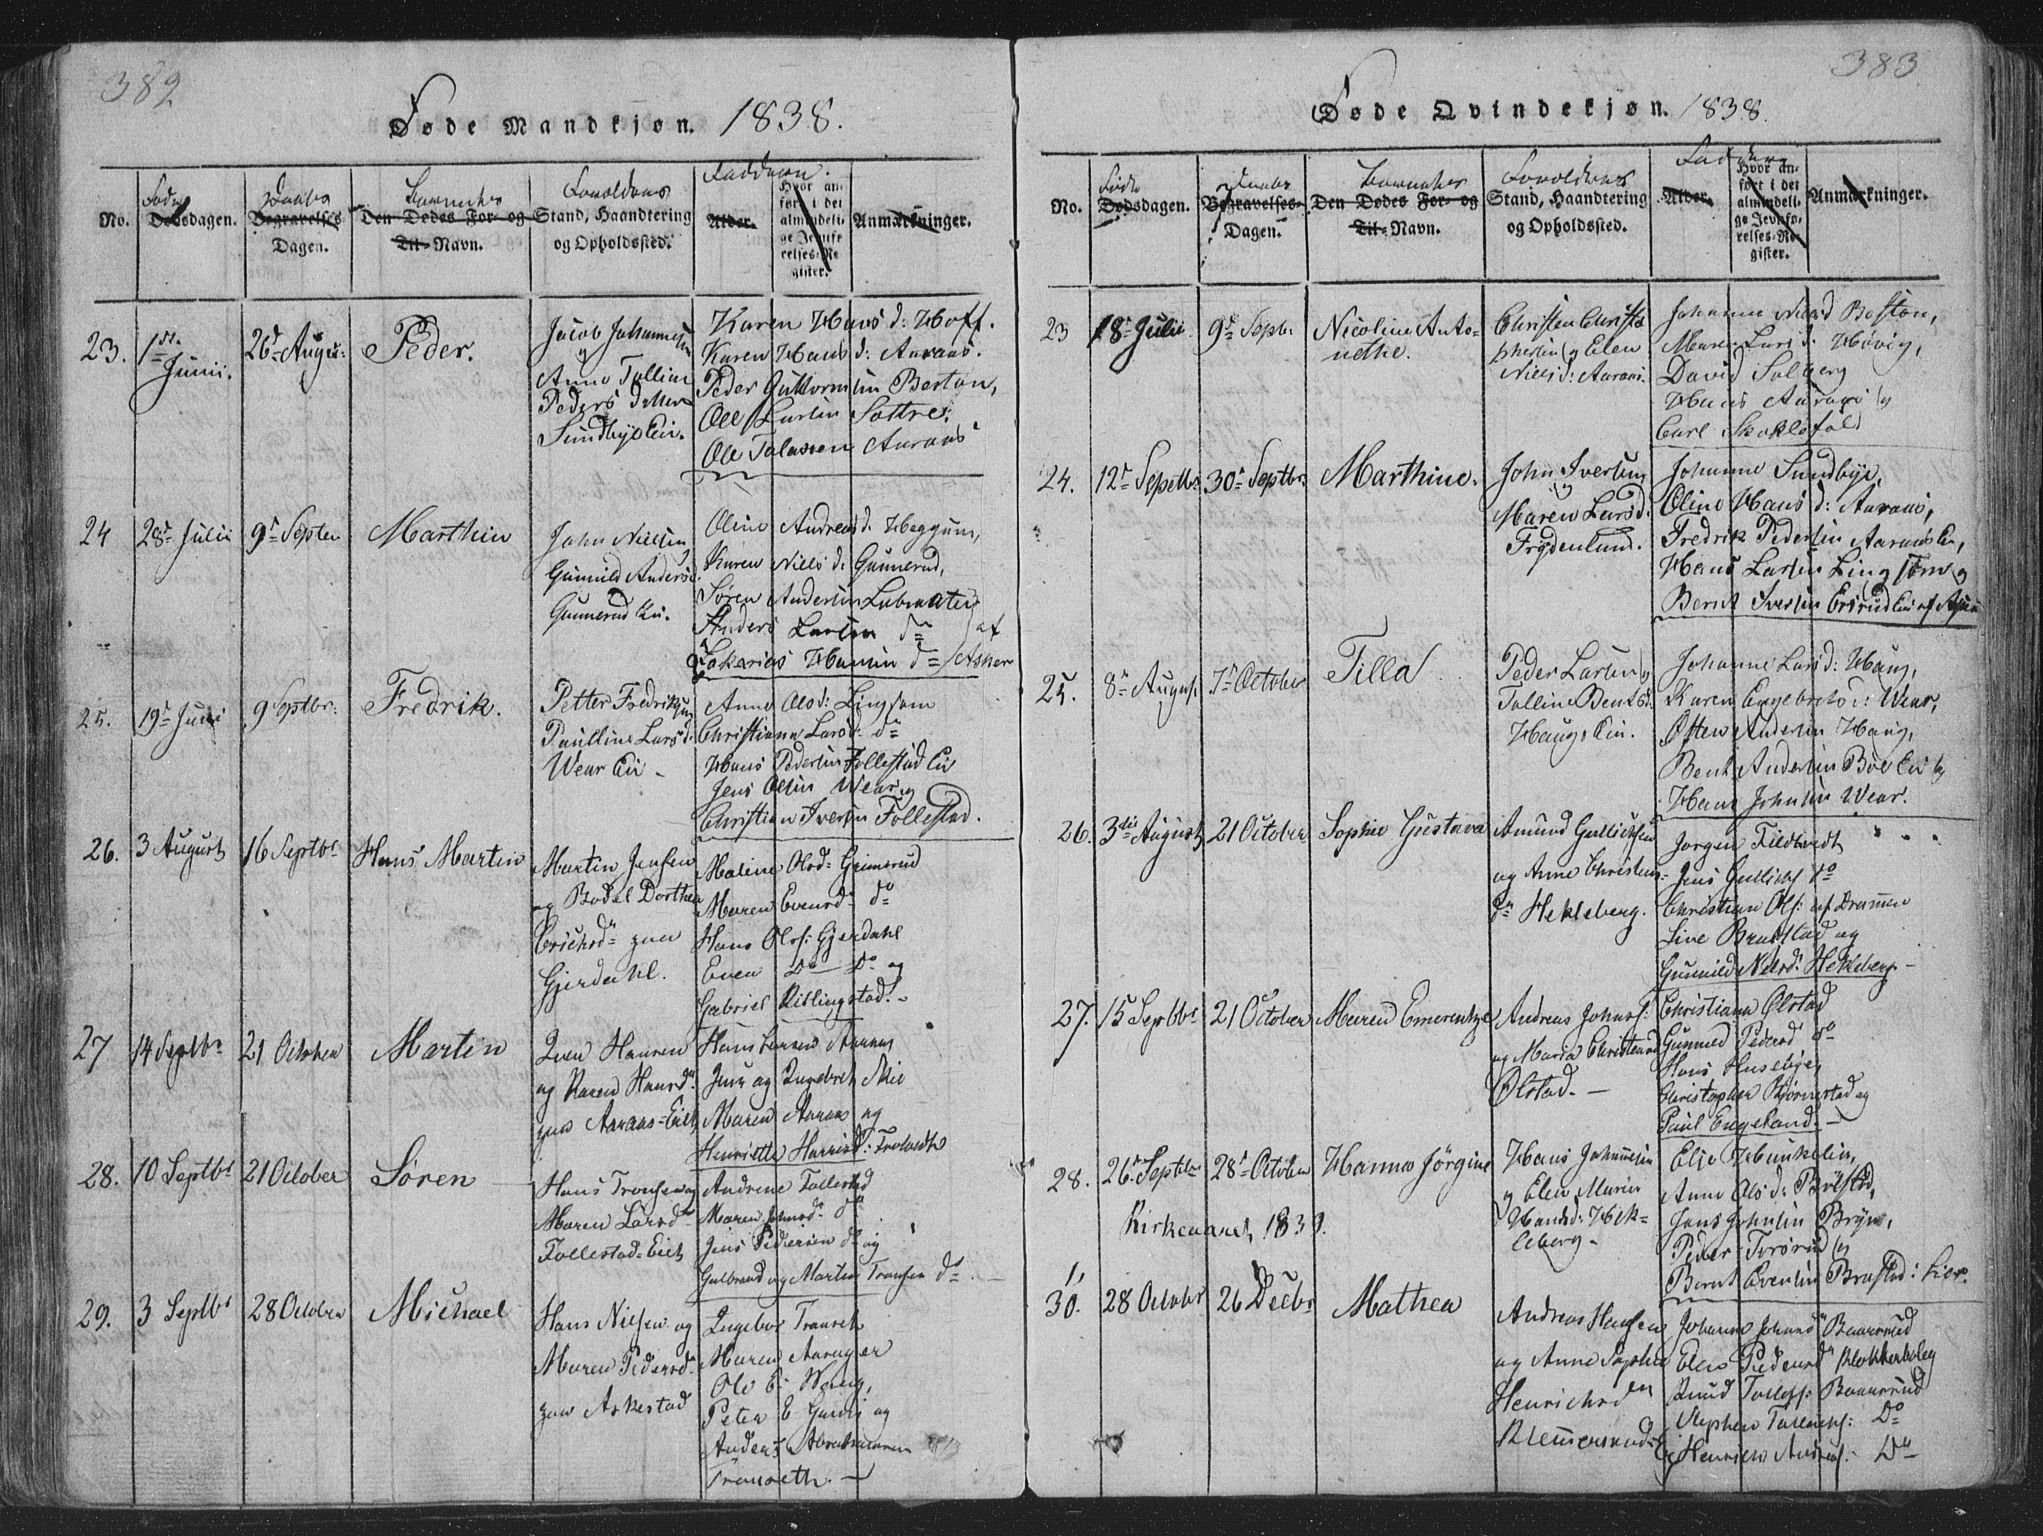 382
Døde Mandkjøn. 1838.
No.
Døde
Dødsdagen.
Daabs
Begravelses-
Dagen.
Barnets
Den Dødes For- og
Til-Navn.
Forældrenes
Stand, Haandtering
og Opholdssted.
Fadderne.
Alder.
Hvor an-
ført i det
almindeli-
ge Jevnfø-
relses-Re-
gister.
Anmærkninger.
23.
1ste
Junii.
26de Augu:
Peder.
Jacob Johannesen
og
Anne Talline
Peders Datter
Sundbye Eie.
Karen Hans d: Hoff.
Karen Hans d: Aaraas.
Peder Guttormsen Berton,
Ole Larsen Sættre.
Ole Tolassen Aaraas
24
28de Julii
9de Septbr
Marthin
John Nielsen
Gunnild Andersd.
Gunnerud Ei.
Oline Andreas d. Heggum,
Karen Niels d: Gunnerud,
Søren Andersen
Anders Larsen do af
Zakarias Hansen do Asker
25.
19de Junii
9 Septbr:
Fredrik.
Petter Fredriksen
Pauline Lars d.
Wear Eie
Anne Olsd: Lingsom
Christiane Larsd: do
Hans Pedersen Follestad Eie
Jens Olsen Wear og
Christian Iversen Follestad.
26.
3 August
16 Septbr
Hans Martin
Martin Jensen
og Bodel Dorthea
Erichsdn paa
Gjerdahl.
Maline Olsd: Grimsrud
Maren Evensd. do
Hans Ols: Gjerdahl
Even Do Do og
Gabriel Riblingstad.
27
14 Septbr
21 October
Martin
Even Hansen
og Karen Hansd.
paa Aaraas-Eiet
Hans Larsen Aaraas
Jens og Engebret Mie
Maren Aaraas og
Henriette Harrisd: Tveteedte
28.
10 Septbr
21 October
Søren
Hans Tronsen og
Maren Larsd
Follestad-Eiet
Andrine Follestad
Maren Johnsd. do
Jens Pedersen do og
Gulbrand og Martin Tronsen do.
29.
3 Septbr
28 October
Michael
Hans Nielsen og
Maren Pedersd.
paa Askestad
Ingebor Tranet
Maren Aarager
Ole E. Haug,
Peter E Gjerdi og
Anders Abrahamsen
Transeth.
383
Døde Qvindekjøn. 1838.
No.
Fødte
Dødsdagen.
Daabs
Begravelses-
Dagen.
Barnets
Den Dødes For- og
Til-Navn.
Forældrenes
Stand, Haandtering
og Opholdssted.
Fadderne
Alder.
Hvor an-
ført i det
almindeli-
ge Jevnfø-
relses-Re-
gister.
Anmærkninger.
23
18de Julii
9de Septbr.
Nicoline Anto-
nethe.
Christen Christo
phersen og Elen
Niels d: Aaraas.
Johanne Niels d Boston,
Maren Lars d: Høvig,
David Solberg
Hans Aarager og
Carl Skoklefald
24.
12te Septbr
30te Septbr.
Marthine.
John Iversen
og
Maren Larsd.
Frydenlund.
Johanne Sundbye,
Oline Hans d: Aaraas,
Fredrik Pedersen Aaraas Ei,
Hans Larsen Lingsom og
Bernt Iversen Eriksrud Eie af Asker
25.
8de August.
7de October
Tilla
Peder Larsen og
Talline Bentsd.
Haug, Eie.
Johanne Larsd: Haug,
Karen Engebrets d: Wear,
Otter Andersen Haug,
Bent Andersen Bøe Ei og
Hans Johnsen Wear.
26.
3die August
21 October
Sophie Gustava
Amund Gullichsen
og Anne Christens-
dn Hekleberg.
Jørgen Tildtvedt
Jens Gullichs do
Christian Ols: af Drammen
Line Brastad og
Gunnild Nilsd: Hekleberg.
27.
15 Septbr
21 October
Maren Emerentze
Andreas Johns:
og Maria Christensd
Ølstad.
Christiana Ølstad
Gunnild Pedersd do
Hans Husebye,
Christopher Bjørnestad og
Paul Engeland.
28.
26de Septbr
28de October
Hanna Jørgine
Hans Johannesen
og Elen Marie
Handsd: Hek-
leberg.
Elje Hunkelin,
Anne Ols d: Bølstad,
Jens Johnsen Bryn,
Peder Tvørud og
Bernt Evensen Brastad i Lier.
Kirkeaaret 1839.
1/
30.
28 October
26 Decbr
Mathea
Andreas Hansen
og Anne Sophie
Henrichsd en
Klemmersrud-Ei
Johanne Johansd. Baarsrud
Elen Pedersd Klokkerboleg
Knud Tollefs: Baarsrud
Stephen Tollefs: Do
Henrich Andreas: Do